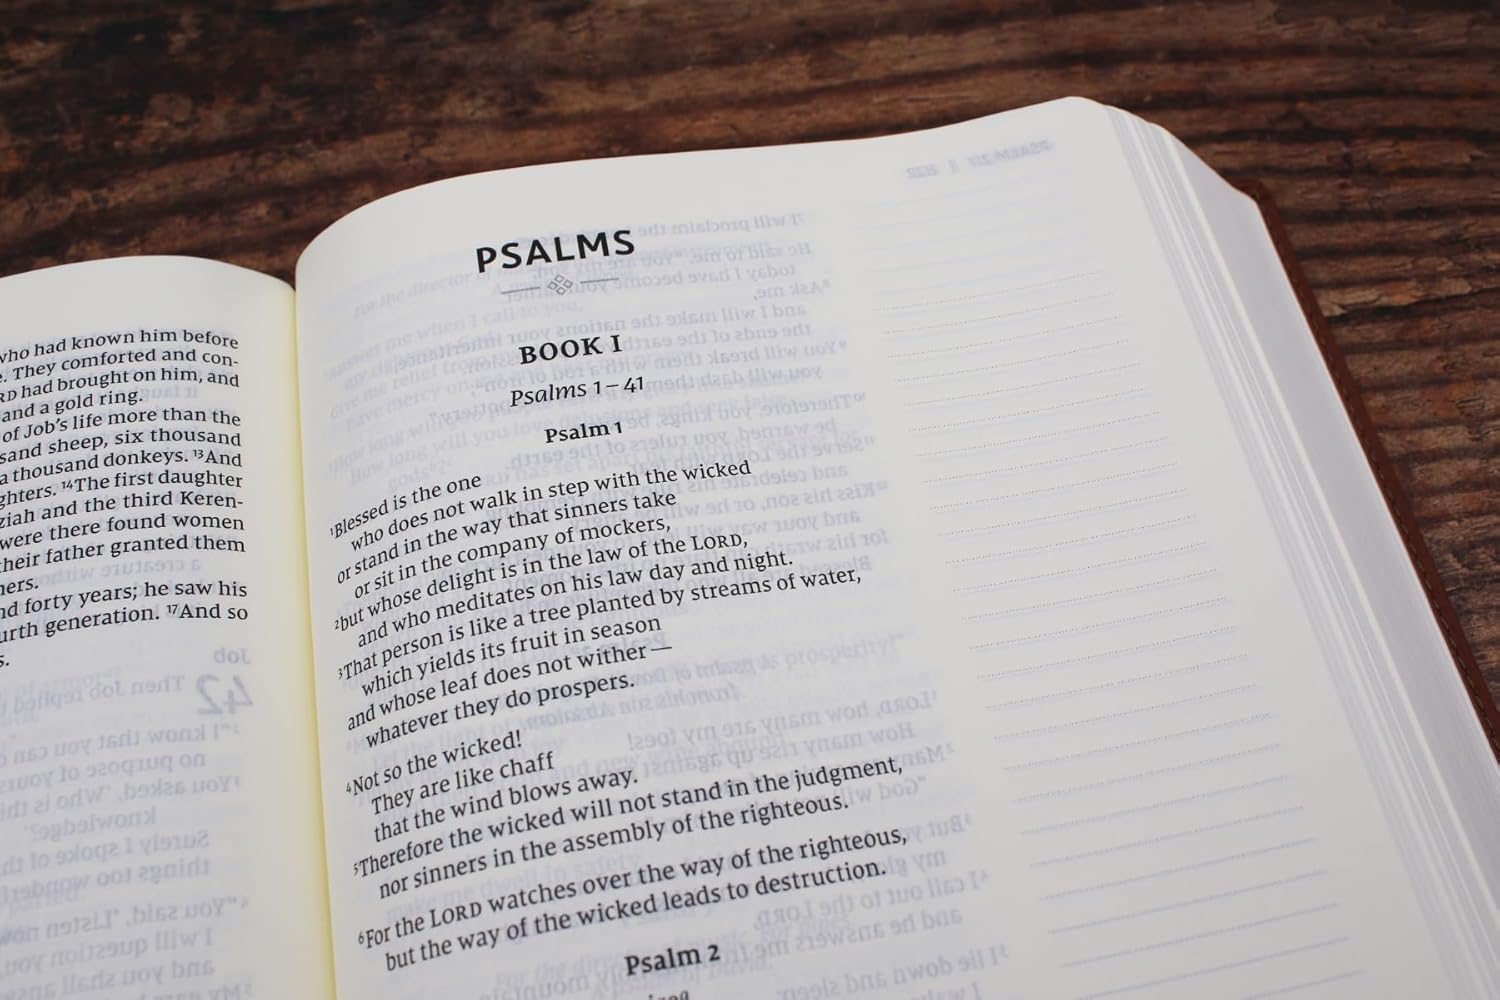 who had known him before
They comforted and con-
had brought on him, and
and a gold ring.
of Job's life more than the
sand sheep, six thousand
a thousand donkeys. ¹³And
ghters. ¹⁴The first daughter
ziah and the third Keren-
were there found women
their father granted them
ners.
nd forty years; he saw his
urth generation. ¹⁷And so
PSALMS
BOOK I
Psalms 1–41
Psalm 1
¹Blessed is the one
who does not walk in step with the wicked
or stand in the way that sinners take
or sit in the company of mockers,
²but whose delight is in the law of the LORD,
and who meditates on his law day and night.
³That person is like a tree planted by streams of water,
which yields its fruit in season
and whose leaf does not wither—
whatever they do prospers.
⁴Not so the wicked!
They are like chaff
that the wind blows away.
⁵Therefore the wicked will not stand in the judgment,
nor sinners in the assembly of the righteous.
⁶For the LORD watches over the way of the righteous,
but the way of the wicked leads to destruction.
Psalm 2